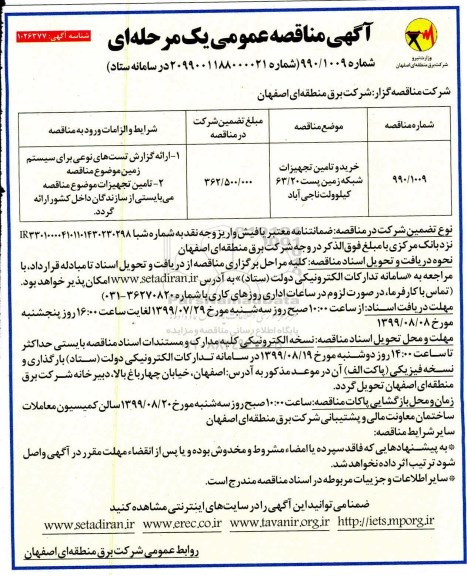 شناسه آگهی: ۱۰۲۶۳۷۷
آگهی مناقصه عمومی یک مرحله‌ای
شماره ۹۹۰/۱۰۰۹ (شماره ۲۰۹۹۰۰۱۱۸۸۰۰۰۰۲۱ در سامانه ستاد)
وزارت نیرو
شرکت برق منطقه‌ای اصفهان
شرکت مناقصه گزار: شرکت برق منطقه‌ای اصفهان
شماره مناقصه
موضع مناقصه
مبلغ تضمین شرکت در مناقصه
شرایط و الزامات ورود به مناقصه
۹۹۰/۱۰۰۹
خرید و تامین تجهیزات
شبکه زمین پست ۶۳/۲۰
کیلوولت ناجی آباد
۳۶۲/۵۰۰/۰۰۰
۱- ارائه گزارش تست‌های نوعی برای سیستم
زمین موضوع مناقصه
۲- تامین تجهیزات موضوع مناقصه
می‌بایستی از سازندگان داخل کشور ارائه
گردد.
نوع تضمین شرکت در مناقصه: ضمانتنامه معتبر یا فیش واریز وجه نقد به شماره شبا IR۳۳۰۱۰۰۰۰۴۱۰۱۱۰۱۴۳۰۲۳۰۲۹۸
نزد بانک مرکزی با مبلغ فوق الذکر در وجه شرکت برق منطقه‌ای اصفهان
نحوه دریافت و تحویل اسناد مناقصه: کلیه مراحل برگزاری مناقصه از دریافت و تحویل اسناد تا مبادله قرارداد، با
مراجعه به «سامانه تدارکات الکترونیکی دولت (ستاد)» به آدرس www.setadiran.ir امکان پذیر خواهد بود.
(تماس با کارفرما، در صورت لزوم در ساعات اداری روزهای کاری با شماره ۳۶۲۷۰۸۲۰-۰۳۱)
مهلت دریافت اسناد: از ساعت ۱۰:۰۰ صبح روز سه‌شنبه مورخ ۱۳۹۹/۰۷/۲۹ لغایت ساعت ۱۶:۰۰ روز پنجشنبه
مورخ ۱۳۹۹/۰۸/۰۸
مهلت و محل تحویل اسناد مناقصه: نسخه الکترونیکی کلیه مدارک و مستندات اسناد مناقصه بایستی حداکثر
تا ساعت ۱۴:۰۰ روز دوشنبه مورخ ۱۳۹۹/۰۸/۱۹ در سامانه تدارکات الکترونیکی دولت (ستاد) بارگذاری و
نسخه فیزیکی (پاکت الف) آن در موعد مذکور به آدرس: اصفهان، خیابان چهارباغ بالا، دبیرخانه شرکت برق
منطقه‌ای اصفهان تحویل گردد.
زمان و محل بازگشایی پاکات مناقصه: ساعت ۱۰:۰۰ صبح روز سه‌شنبه مورخ ۱۳۹۹/۰۸/۲۰ سالن کمیسیون معاملات
ساختمان معاونت مالی و پشتیبانی شرکت برق منطقه‌ای اصفهان
سایر شرایط مناقصه:
* به پیشنهادهایی که فاقد سپرده یا امضاء مشروط و مخدوش بوده و یا پس از انقضاء مهلت مقرر در آگهی واصل
شود ترتیب اثر داده نخواهد شد.
* سایر اطلاعات و جزییات مربوطه در اسناد مناقصه مندرج است.
ضمنا می‌توانید این آگهی را در سایت‌های اینترنتی مشاهده کنید
www.setadiran.ir www.erec.co.ir www.tavanir.org.ir http://iets.mporg.ir
روابط عمومی شرکت برق منطقه‌ای اصفهان